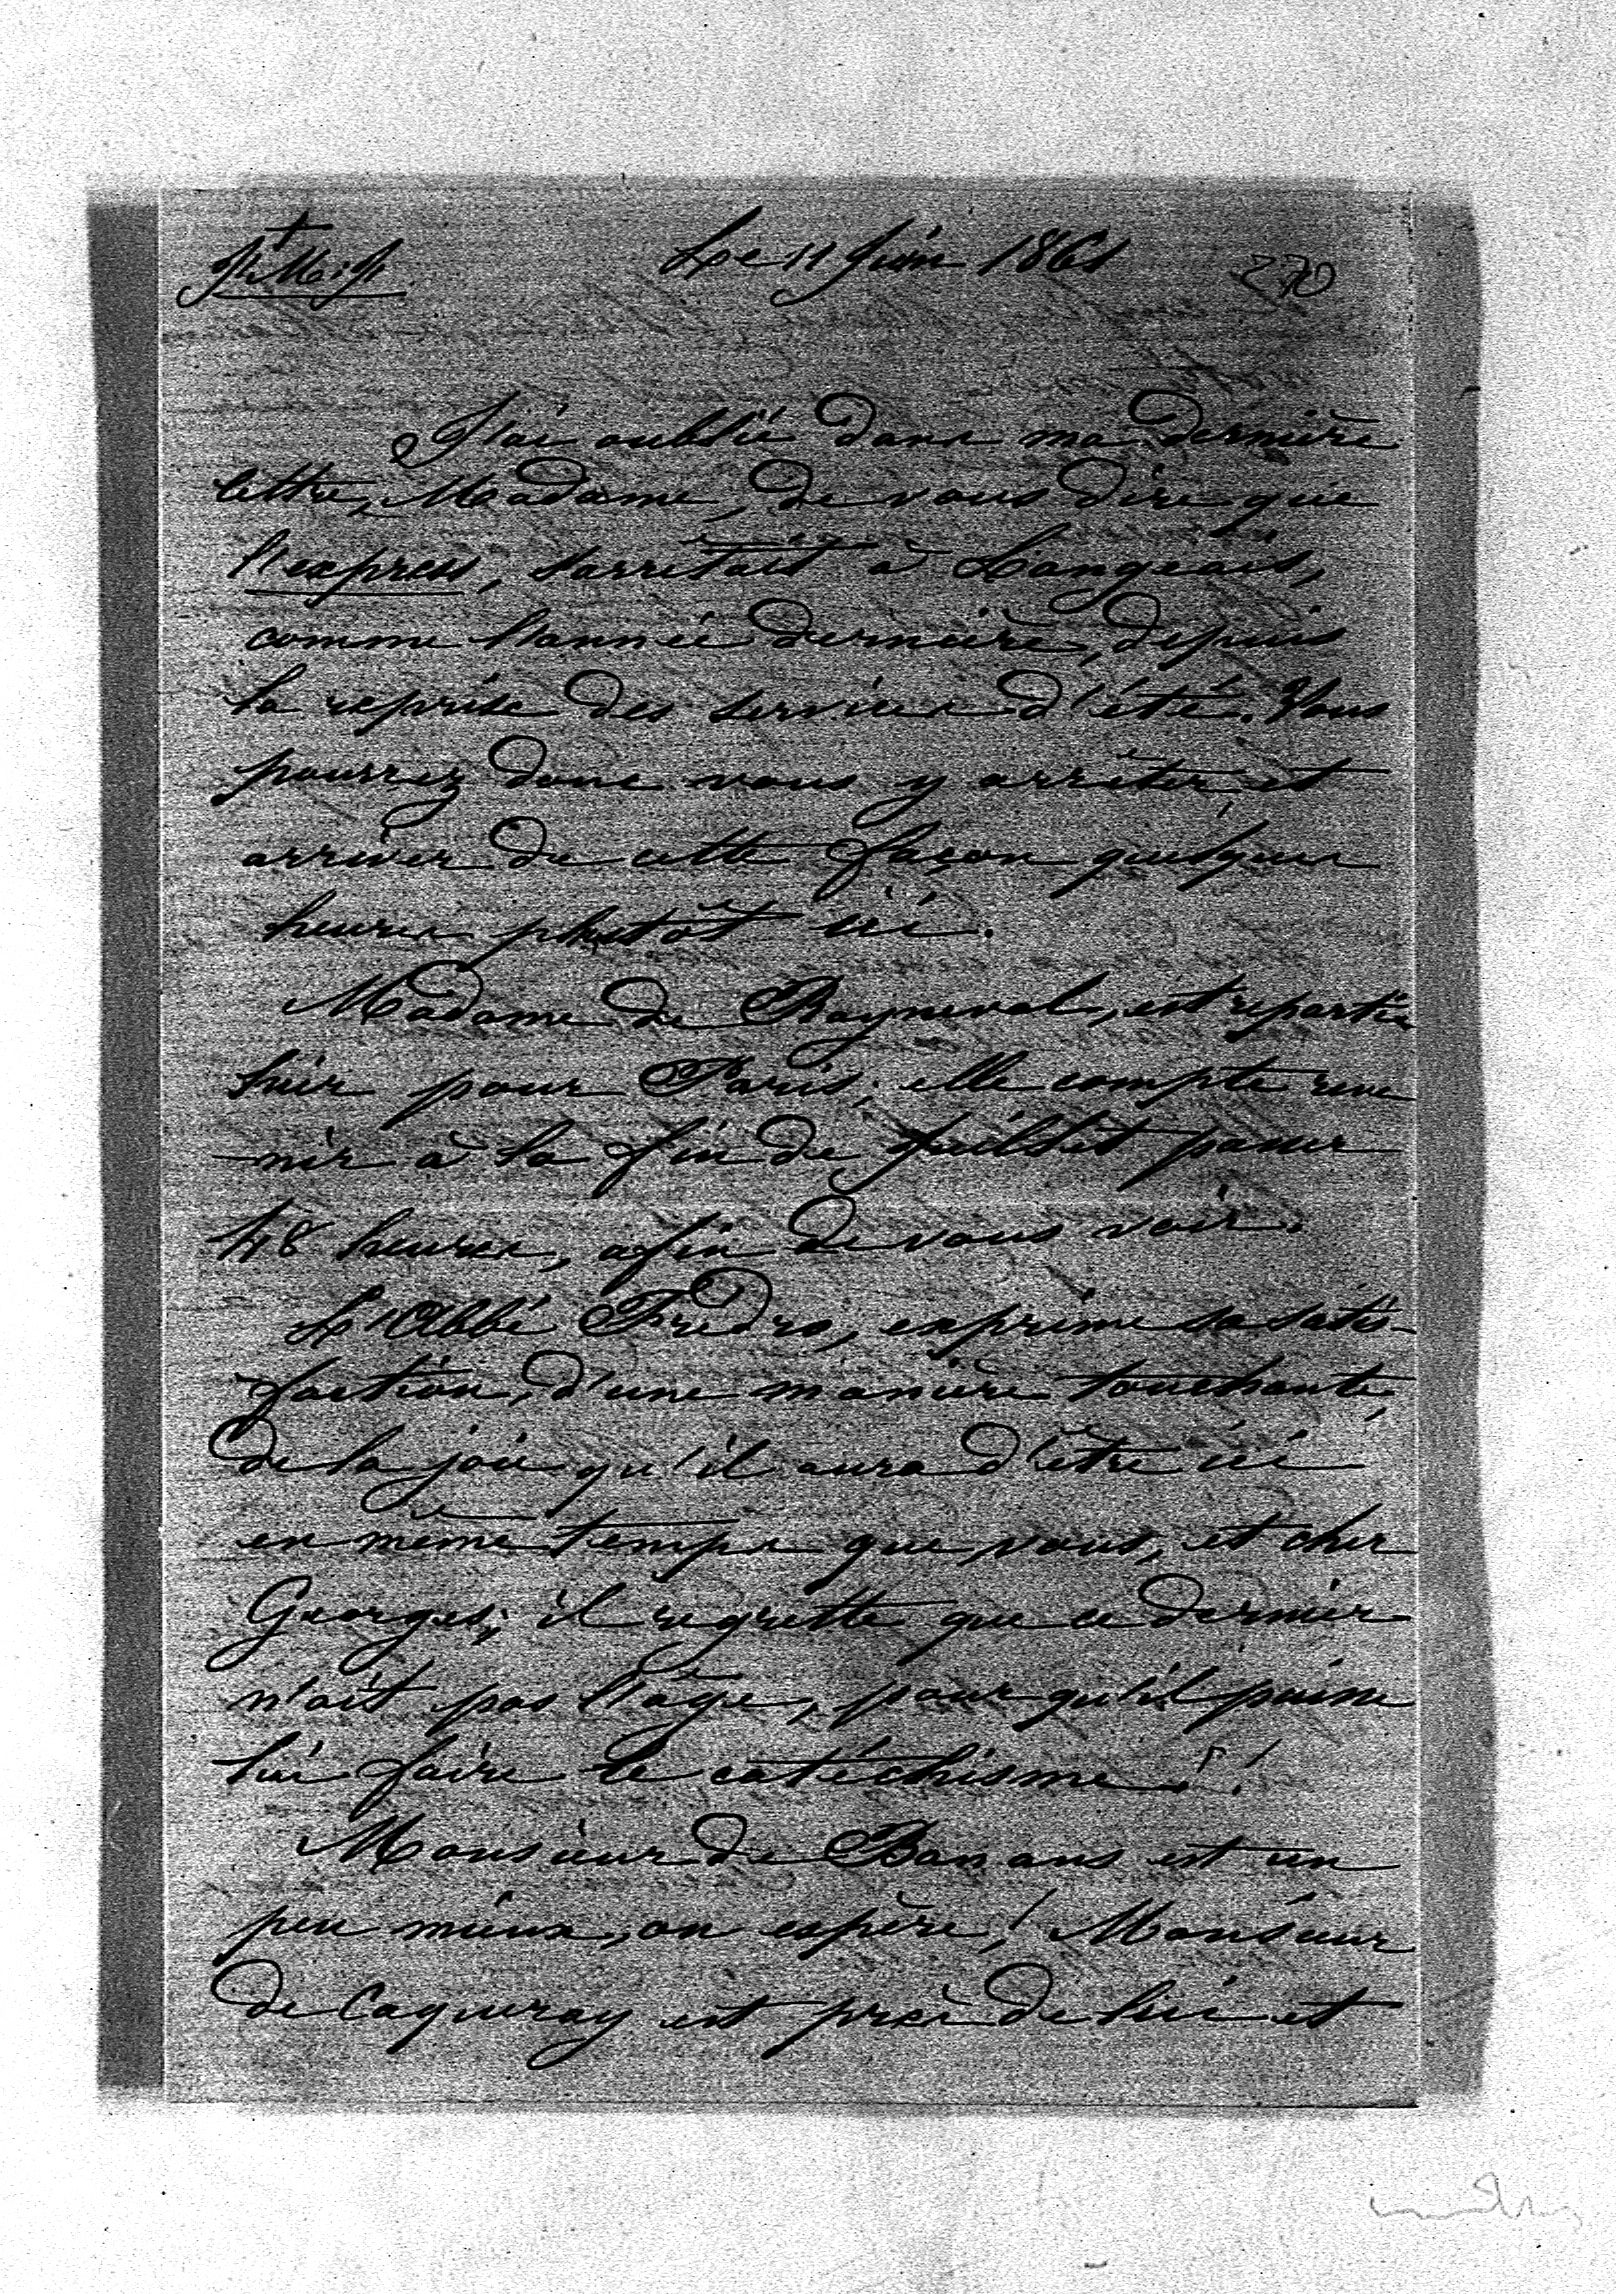 J. M. J.
Le 11 Juin 1861
270
J'ai oublié dans ma dernière
lettre, Madame, de vous dire que
l'express, s'arrêtait à Langeais,
comme l'année dernière, depuis
la reprise des services d'été. Vous
pourrez donc vous y arrêter et
arriver de cette façon quelques
heures plutôt ici.
Madame de Rayneval, est repartie
hier pour Paris; elle compte reve
-nir à la fin de Juillet passer
48 heures, afin de vous voir.
L'Abbé Fredro, exprime sa satis-
faction, d'une manière touchante,
de la joie qu'il aura d'être ici
en même temps que vous, et cher
Georges; il regrette que ce dernier
n'ait pas l'âge, pour qu'il puisse
lui faire le catéchisme!
Monsieur de Bonans est un
peu mieux, on espère! Monsieur
de Caqueray est près de lui et